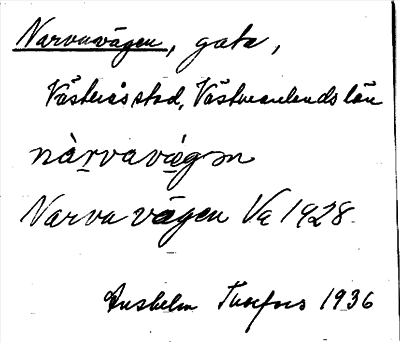 Narvavägen, gata,
Västerås stad, Västmanlands län
nàrvavä́gɱ
Narvavägen Va 1928
Anshelm Tunfors 1936